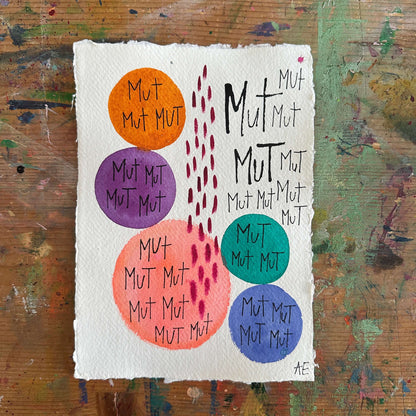 Mut
Mut MUT
Mut Mut
MuT Mut
Mut
MuT Mut
Mut Mut
MUT Mut
Mut
Mut
Mut
MuT
MuT
Mut Mut
Mut
MuT
MuT
Mut MuT
Mut MuT
MuT Mut
AE